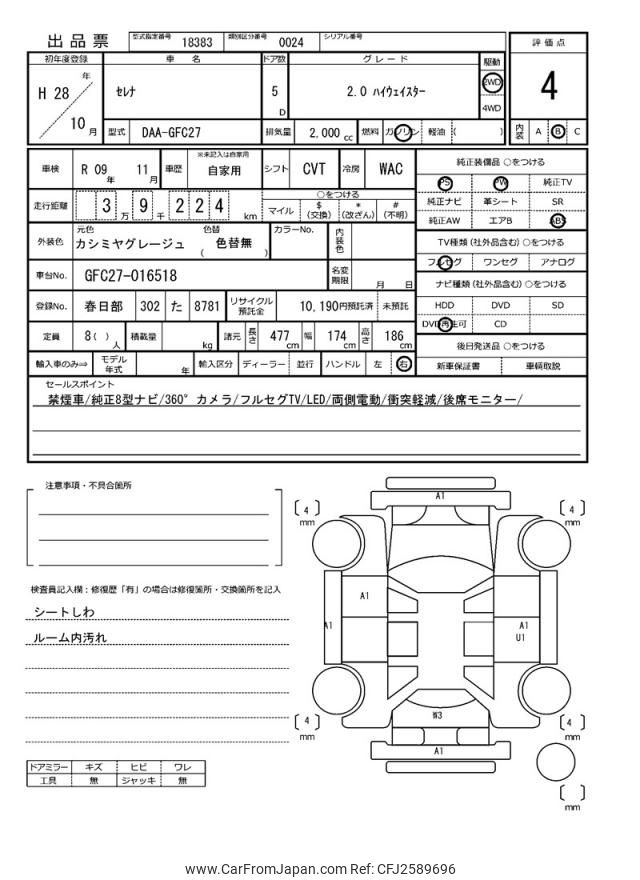 出品票 型式指定番号 18383 類別区分番号 0024 シリアル番号
評価点
4
初年度登録 車名 ドア数 グレード 駆動
H 28 年 10 月 セレナ 5 D 2.0 ハイウェイスター 2WD 4WD
型式 DAA-GFC27 排気量 2,000 cc 燃料 ガソリン 軽油 ( )
内装 A B C
車検 R 09 年 11 月 車歴 ※未記入は自家用 自家用 シフト CVT 冷房 WAC
走行距離 3 万 9 千 2 2 4 km ○をつける マイル $ (交換) * (改ざん) # (不明)
外装色 元色 カシミヤグレージュ 色替 ( 色替無 ) カラーNo. 内装色
車台No. GFC27-016518 名変期限 月 日
登録No. 春日部 302 た 8781 リサイクル預託金 10,190円預託済 未預託
定員 8( ) 人 積載量 kg 諸元 長さ 477 cm 幅 174 cm 高さ 186 cm
輸入車のみ⇒ モデル年式 年 輸入区分 ディーラー 並行 ハンドル 左 右
純正装備品 ○をつける
PS PW 純正TV
純正ナビ 革シート SR
純正AW エアB ABS
TV種類 (社外品含む) ○をつける
フルセグ ワンセグ アナログ
ナビ種類 (社外品含む) ○をつける
HDD DVD SD
DVD再生可 CD
後日発送品 ○をつける
新車保証書 車輌取説
セールスポイント
禁煙車/純正8型ナビ/360° カメラ/フルセグTV/LED/両側電動/衝突軽減/後席モニター/
注意事項・不具合箇所
検査員記入欄：修復歴「有」の場合は修復箇所・交換箇所を記入
シートしわ
ルーム内汚れ
ドアミラー キズ ヒビ ワレ
工具 無 ジャッキ 無
A1
4 mm
4 mm
A1
A1
A1
U1
W3
4 mm
4 mm
A1
mm
www.CarFromJapan.com Ref: CFJ2589696